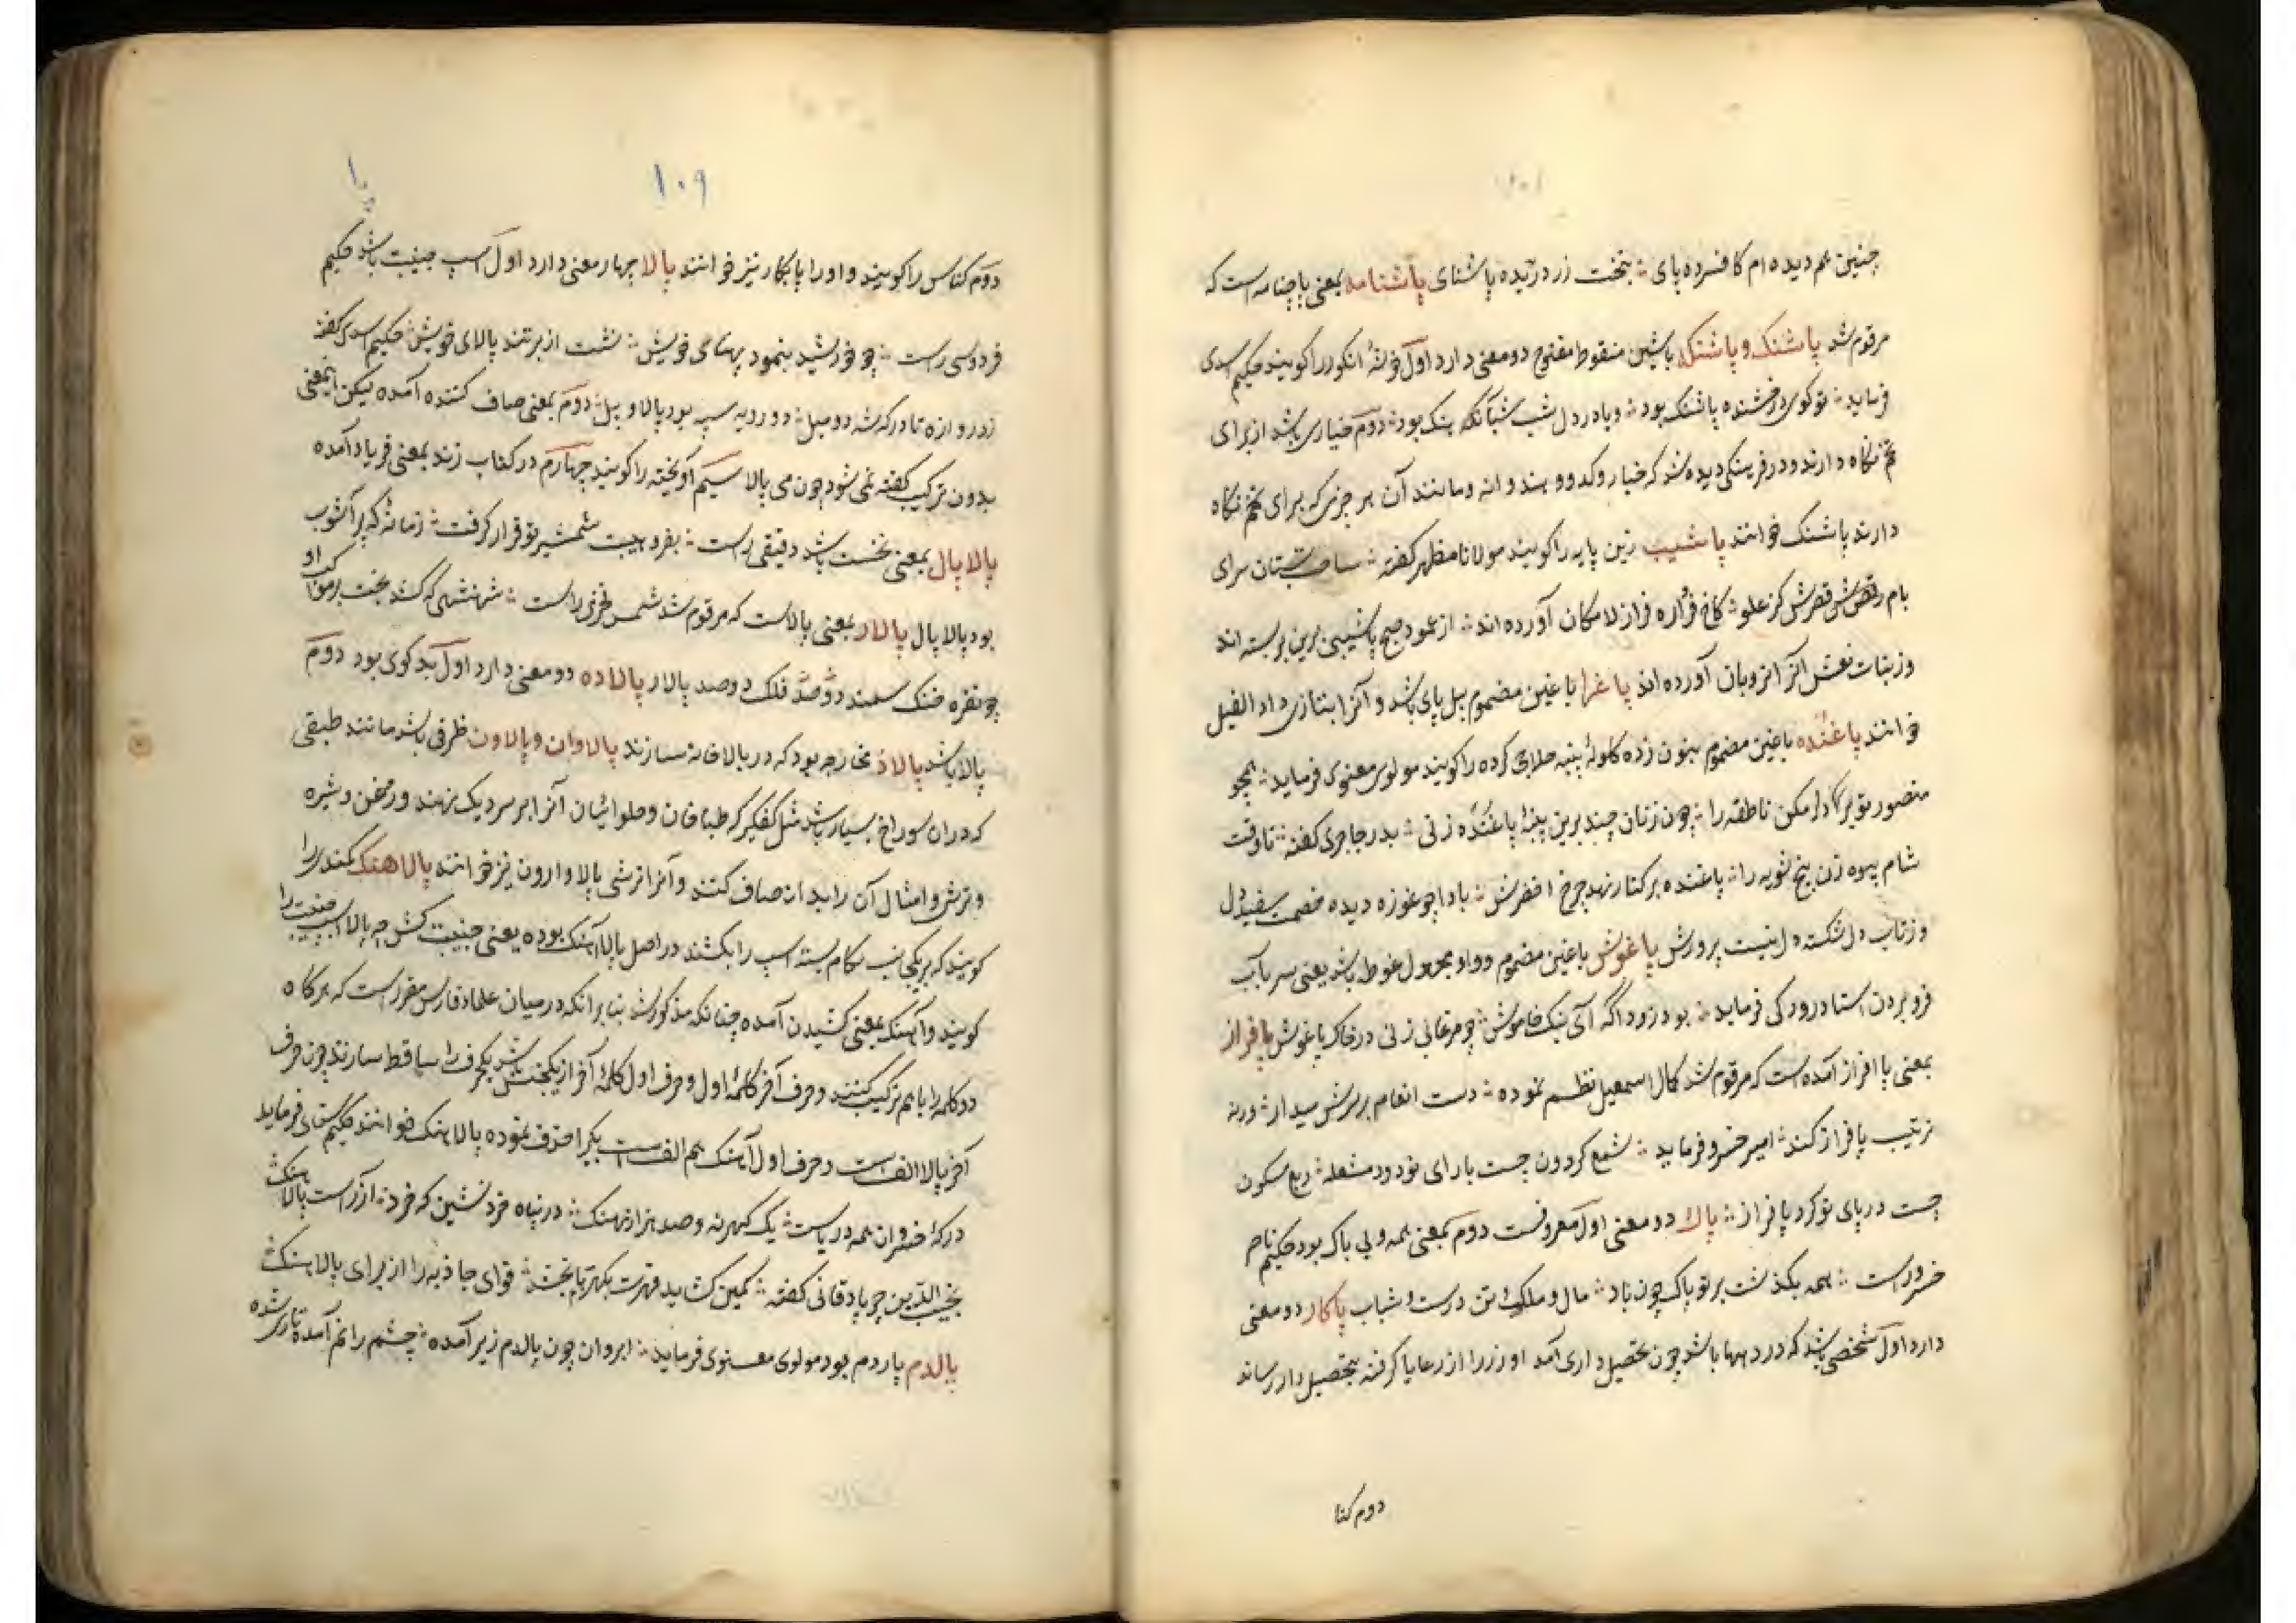 چنین هم دیده ام کافسرده پای ؞ بتخت زر درزیده پاشنای پاشنامه بمعنی پاچنامه است که
مرقوم شد پاشنک و پاشنکه باشین منقوط مفتوح دو معنی دارد اول خوشهٔ انکور را کویند حکیم اسدی
فرماید ؞ تو کوی درفشنده پاشنک بود ؞ و یا در دل شب شباهنک بود ؞ دوم خیاری باشد از برای
تخم نکاه دارند و در فرهنکی دیده شد که خیار و کدو و هندوانه و مانند آن هر چیزی که برای تخم نکاه
دارند پاشنک خوانند پاشیب زین پایه را کویند مولانا مظهر کفته ؞ ساحت بستان سرای
بام رقص قصرش کز علو ؞ کاخ فراره فراز لامکان آورده اند ؞ از عمود صبح پاشیبی برین بر بسته اند
وز بنات نعش آنرا نردبان آورده اند پاغرا باغین مضموم پیل پای باشد و آنرا بتازی داء الفیل
خوانند پاغنده باغین مضموم بنون زده کلولهٔ پنبه حلاجی کرده را کویند مولوی معنوی فرماید ؞ همچو
منصور تو بردار مکن ناطقه را ؞ چون زنان چند برین پنبهٔ پاغنده زنی ؞ بدر جاجرمی کفته ؞ تا وقت
شام بیوه زن پنج شویه را ؞ پاغنده بر کنار نهد چرخ اخضرش ؞ بادا چو غوزه دیده خصمت سفید و دل
وز تاب دل شکسته دل نیست پرورش پاغوش باغین مضموم و واو مجهول غوطه باشد یعنی سر بآب
فرو بردن استاد رودکی فرماید ؞ بود زودا که آی نیک خاموش ؞ چو مرغابی زنی در خاک پاغوش پافراز
بمعنی پا افراز آمده است که مرقوم شد کمال اسمعیل نظم نموده ؞ دست انعام بر سرش میدار ؞ ورنه
ترتیب پافراز کند ؞ امیر خسرو فرماید ؞ شمع کردون چست بارای نو دود مشعله ؞ ربع مسکون
چست در پای تو کرد پافراز ؞ پاک دو معنی اول معروفست دوم بمعنی همه و بی باک بود حکیم ناصر
خسرو راست ؞ همه بکذشت بر تو پاک چون باد ؞ مال و ملک و تن درست و شباب پاکار دو معنی
دارد اول شخصی باشد که در دهها باشد چون تحصیل داری آمد او زر را از رعایا کرفته بتحصیل دار رساند
دوم کنا
۱۰۹
دوم کناس را کویند و او را پابکار نیز خوانند پالا چهار معنی دارد اول اسپ جنیبت باشد حکیم
فردوسی راست ؞ چو خورشید بنمود پهنای خویش ؞ نشست از بر تند پالای خویش ؞ حکیم اسدی کفته
ز دروازه تا درکه شه دو میل ؞ دو رویه سپه بود پالا و پیل ؞ دوم بمعنی صاف کننده آمده لیکن اینمعنی
بدون ترکیب کفته نمی شود چون می پالا سیم آویخته را کویند چهارم در کتاب زند بمعنی فریاد آمده
پالاپال بمعنی نخست باشد دقیقی راست ؞ بفر و هیبت شمشیر تو قرار کرفت ؞ زمانهٔ که پر آشوب
بود پالاپال پالار بمعنی پالاست که مرقوم شد شمس فخری راست ؞ شهنشهی که کشد بخت بر مواکب او
چو نقره خنک سمند دوصد فلک دوصد پالار پالاده دو معنی دارد اول بد کوی بود دوم
پالا باشد پالاذ نخارجه بود که در بالاخانه سازند پالاوان و پالاون ظرفی باشد مانند طبقی
که در ان سوراخ بسیار باشد مثل کفکیر که طباخان و حلوائیان آنرا بر سر دیک نهند و روغن و شیره
و ترشی و امثال آن را بدان صاف کنند و آنرا ترشی پالا و ارون نیز خوانند پالاهنک کمندی را
کویند که بر یکجانب لکام بسته اسپ را بکشند در اصل پالاآهنک بوده یعنی جنیبت کش چه پالا اسپ جنیبت را
کویند و آهنک بمعنی کشیدن آمده چنانکه مذکور شد بنا بر انکه در میان علماء فارس مقرر است که هر کاه
دو کلمه را با هم ترکیب کنند و حرف آخر کلمهٔ اول و حرف اول کلمهٔ آخر از یکجنس باشد یکحرف را ساقط سازند چون حرف
آخر پالا الف است و حرف اول آهنک هم الف است یکیرا حذف نموده پالاهنک خوانند حکیم سنائی فرماید
در کهٔ خسروان همه دریاست ؞ یک کهر نه و صد هزار نهنک ؞ در پناه خرد نشین که خرد ؞ از رست پالاهنک
نجیب الدین جرباذقانی کفته ؞ کمین کشاید قهرت بکهربا بخشد ؞ قوای جاذبه را از برای پالاهنک
پالدم پاردم بود مولوی معنوی فرماید ؞ ابروان چون پالدم زیر آمده ؞ چشم را نم آمده تاری شده